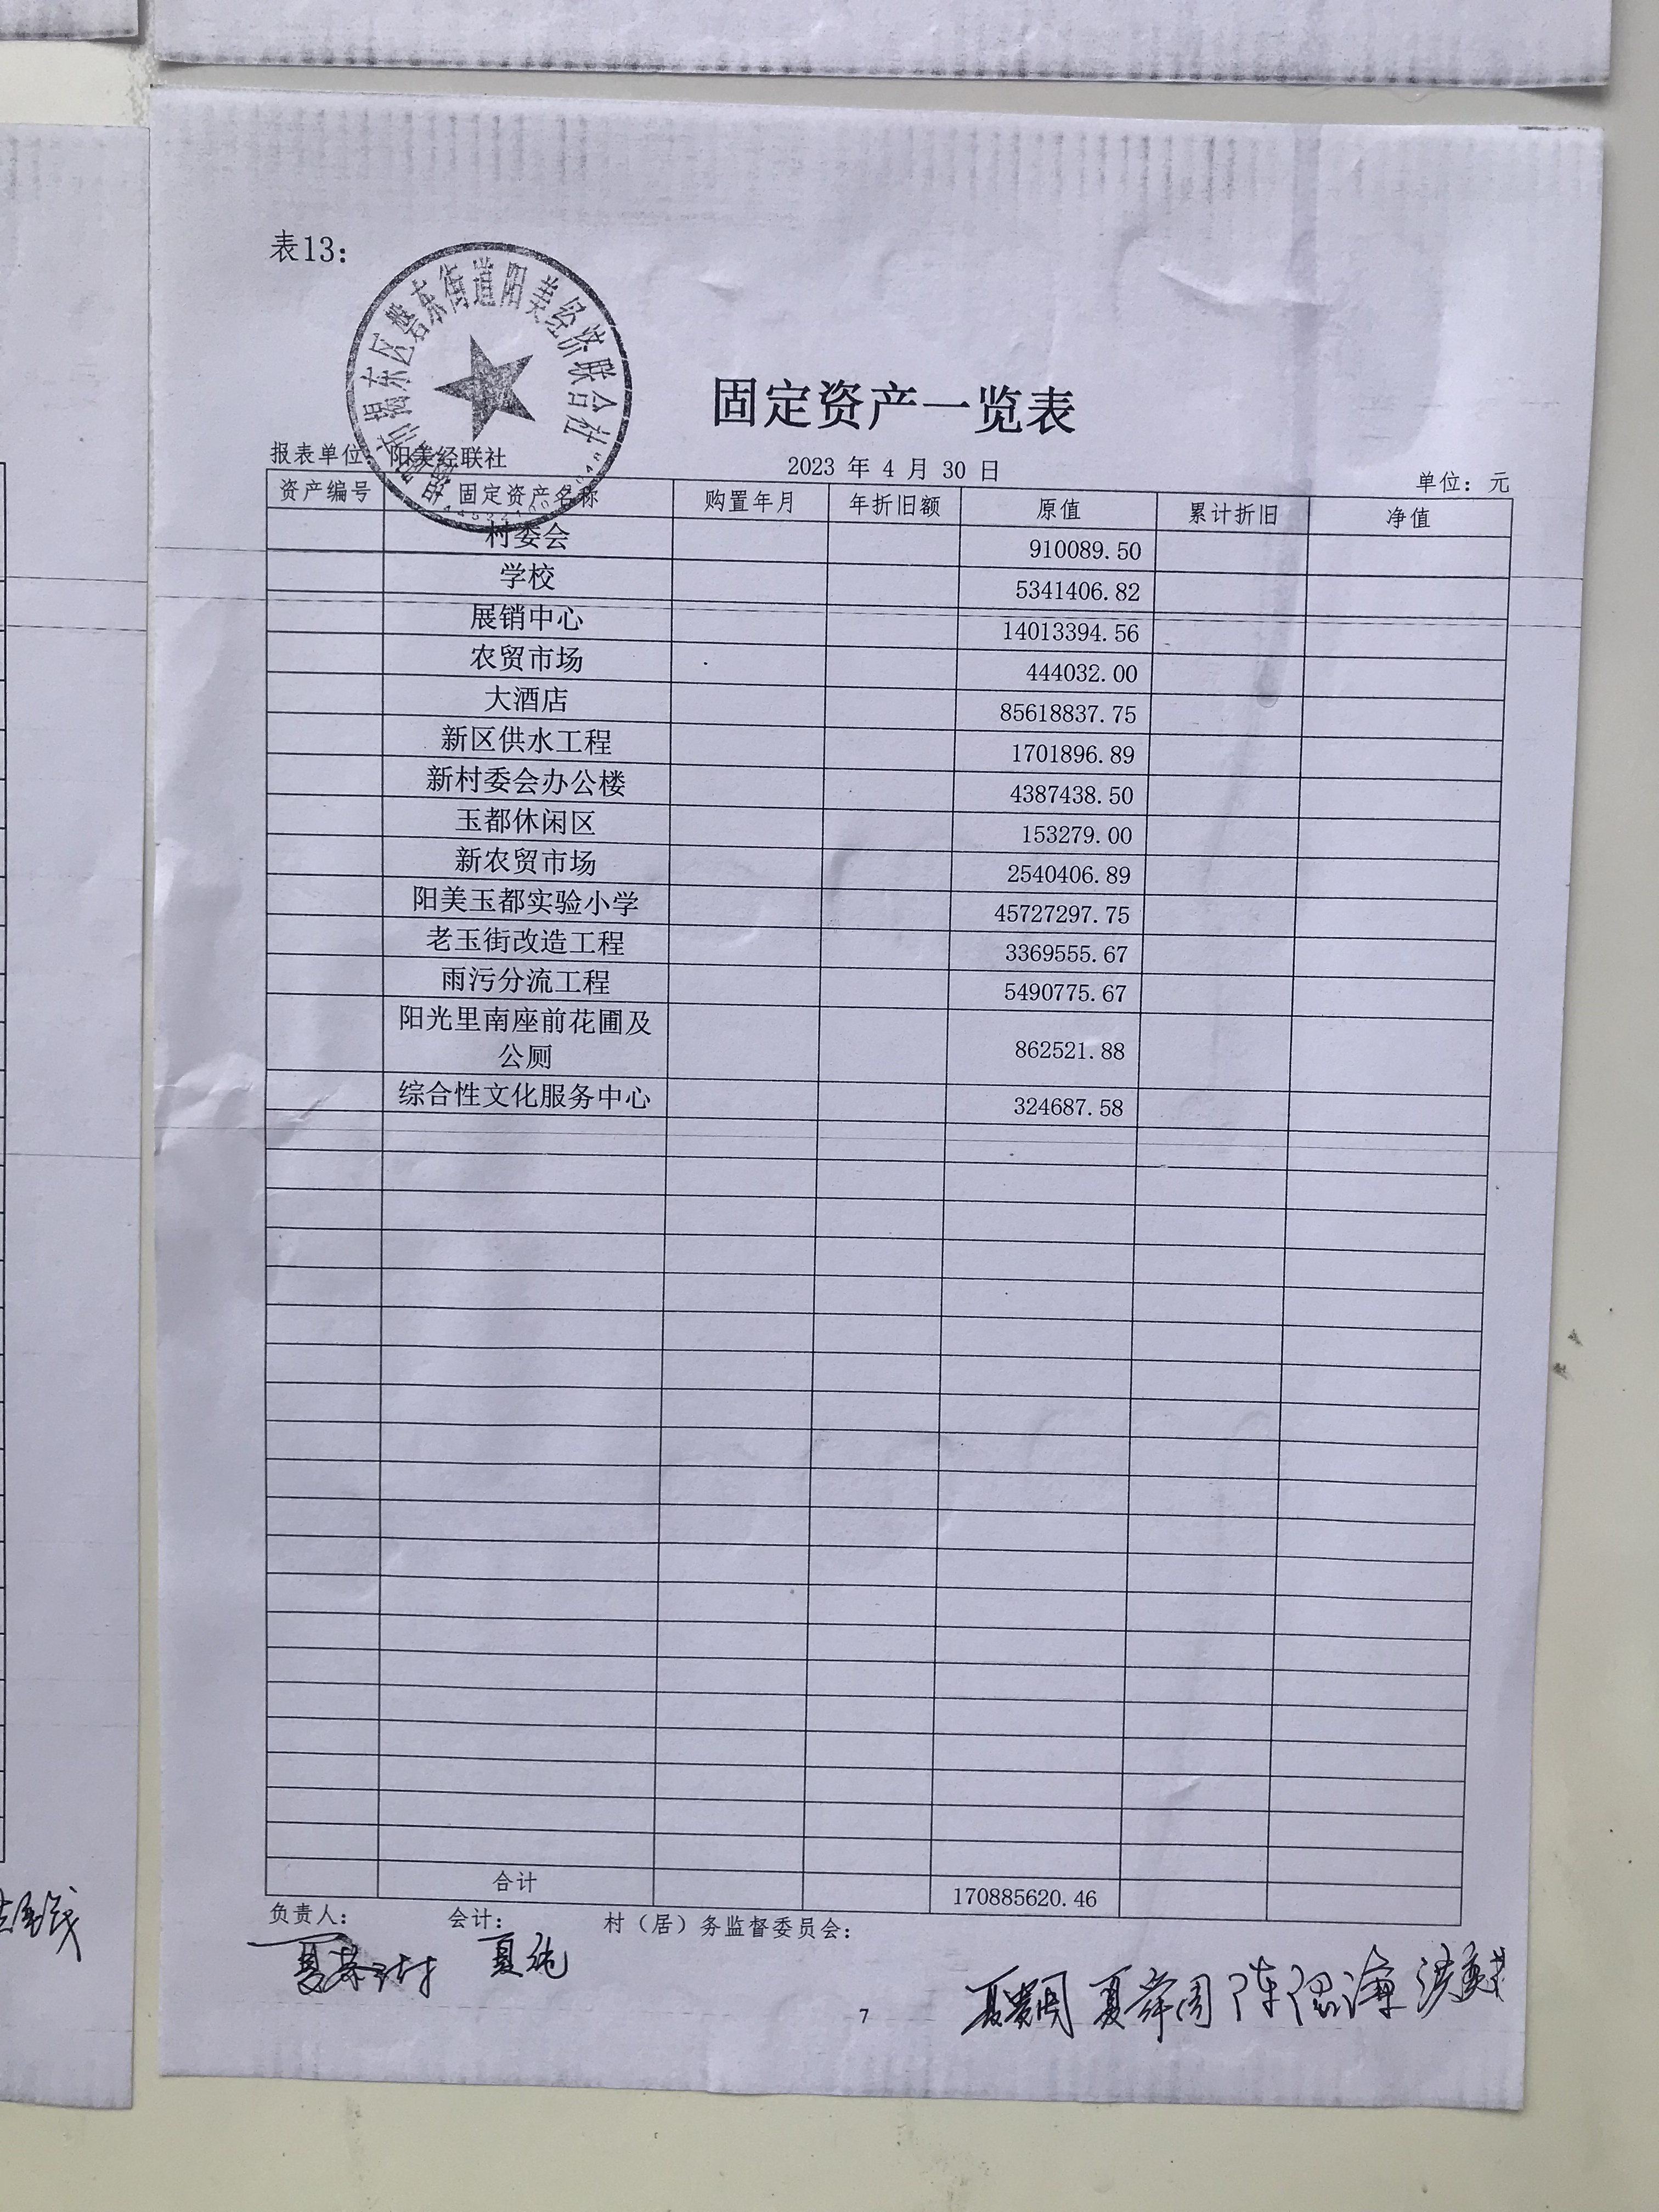 表13：
揭阳市揭东区磐东街道阳美经济联合社
固定资产一览表
报表单位：阳美经联社 2023 年 4 月 30 日 单位：元
资产编号 固定资产名称 购置年月 年折旧额 原值 累计折旧 净值
村委会 910089.50
学校 5341406.82
展销中心 14013394.56
农贸市场 444032.00
大酒店 85618837.75
新区供水工程 1701896.89
新村委会办公楼 4387438.50
玉都休闲区 153279.00
新农贸市场 2540406.89
阳美玉都实验小学 45727297.75
老玉街改造工程 3369555.67
雨污分流工程 5490775.67
阳光里南座前花圃及
公厕 862521.88
综合性文化服务中心 324687.58
合计 170885620.46
负责人： 会计： 村（居）务监督委员会：
夏舜周
7